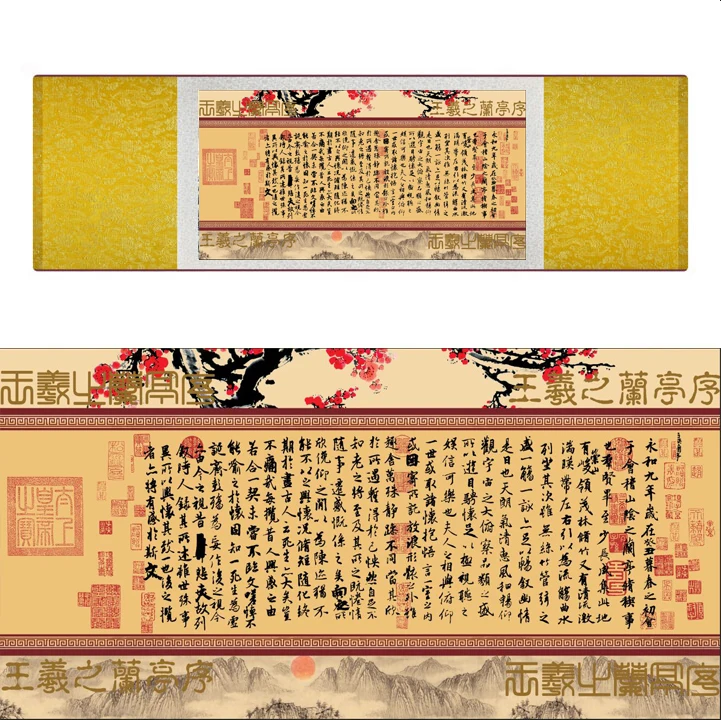 王羲之蘭亭序
王羲之蘭亭序
王羲之蘭亭序
王羲之蘭亭序
王羲之蘭亭序
王羲之蘭亭序
永和九年歲在癸丑暮春之初會
于會稽山陰之蘭亭脩稧事
也羣賢畢至少長咸集此地
有崇山峻領茂林脩竹又有清流激
湍暎帶左右引以為流觴曲水
列坐其次雖無絲竹管弦之
盛一觴一詠亦足以暢敘幽情
是日也天朗氣清惠風和暢仰
觀宇宙之大俯察品類之盛
所以遊目騁懷足以極視聽之
娛信可樂也夫人之相與俯仰
一世或取諸懷抱悟言一室之內
或因寄所託放浪形骸之外雖
趣舍萬殊靜躁不同當其欣
於所遇蹔得於己怏然自足不
知老之將至及其所之既惓情
隨事遷感慨係之矣向之所
欣俛仰之閒以為陳迹猶不
能不以之興懷況脩短隨化終
期於盡古人云死生亦大矣豈
不痛哉每攬昔人興感之由
若合一契未嘗不臨文嗟悼不
能喻之於懷固知一死生為虛
誕齊彭殤為妄作後之視今
亦由今之視昔悲夫故列
敘時人錄其所述雖世殊事
異所以興懷其致一也後之攬
者亦將有感於斯文
王羲之蘭亭序
王羲之蘭亭序